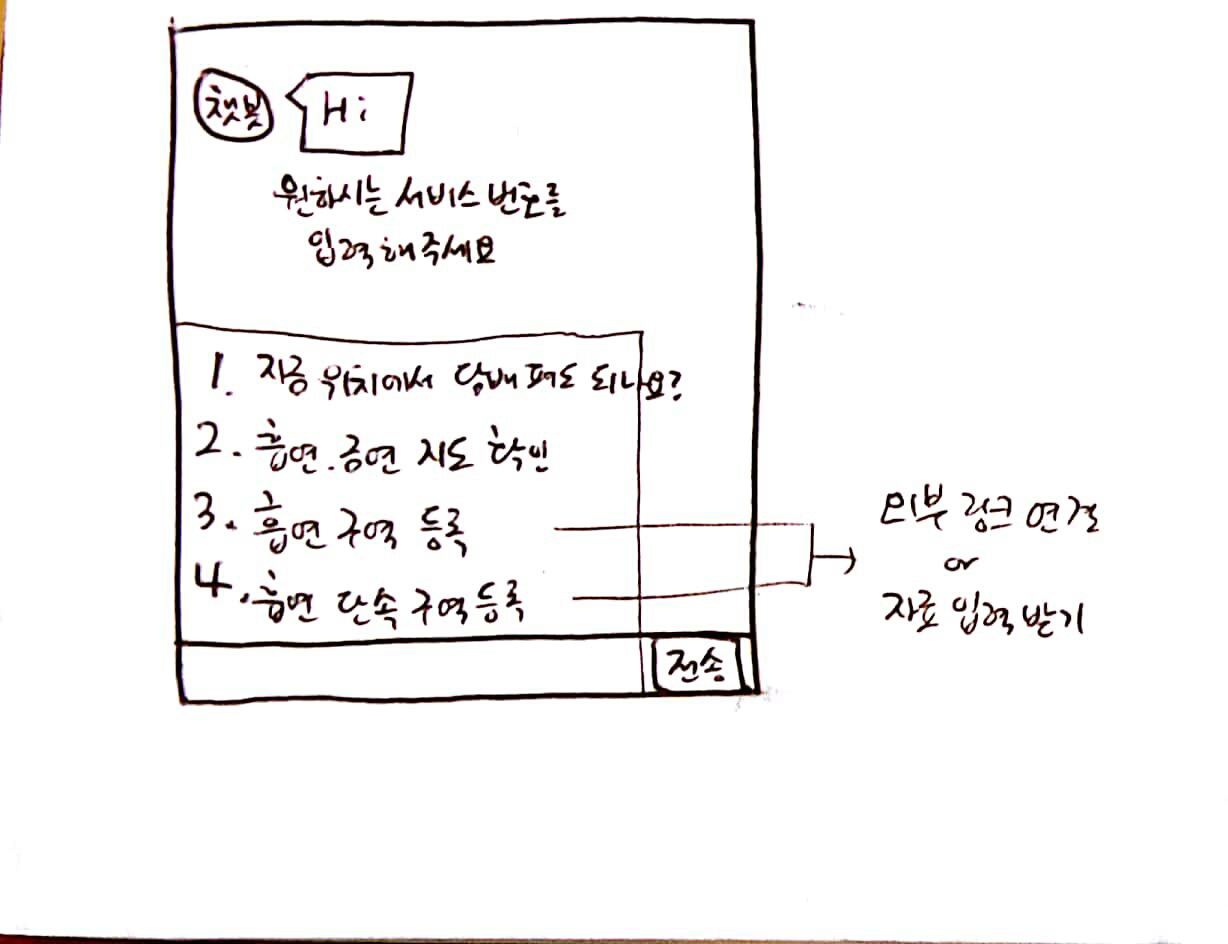 챗봇
Hi
원하시는 서비스 번호를
입력해주세요
1. 지금 위치에서 담배 펴도 되나요?
2. 흡연.금연 지도 확인
3. 흡연 구역 등록
4. 흡연 단속 구역 등록
전송
외부 링크 연결
or
자료 입력 받기